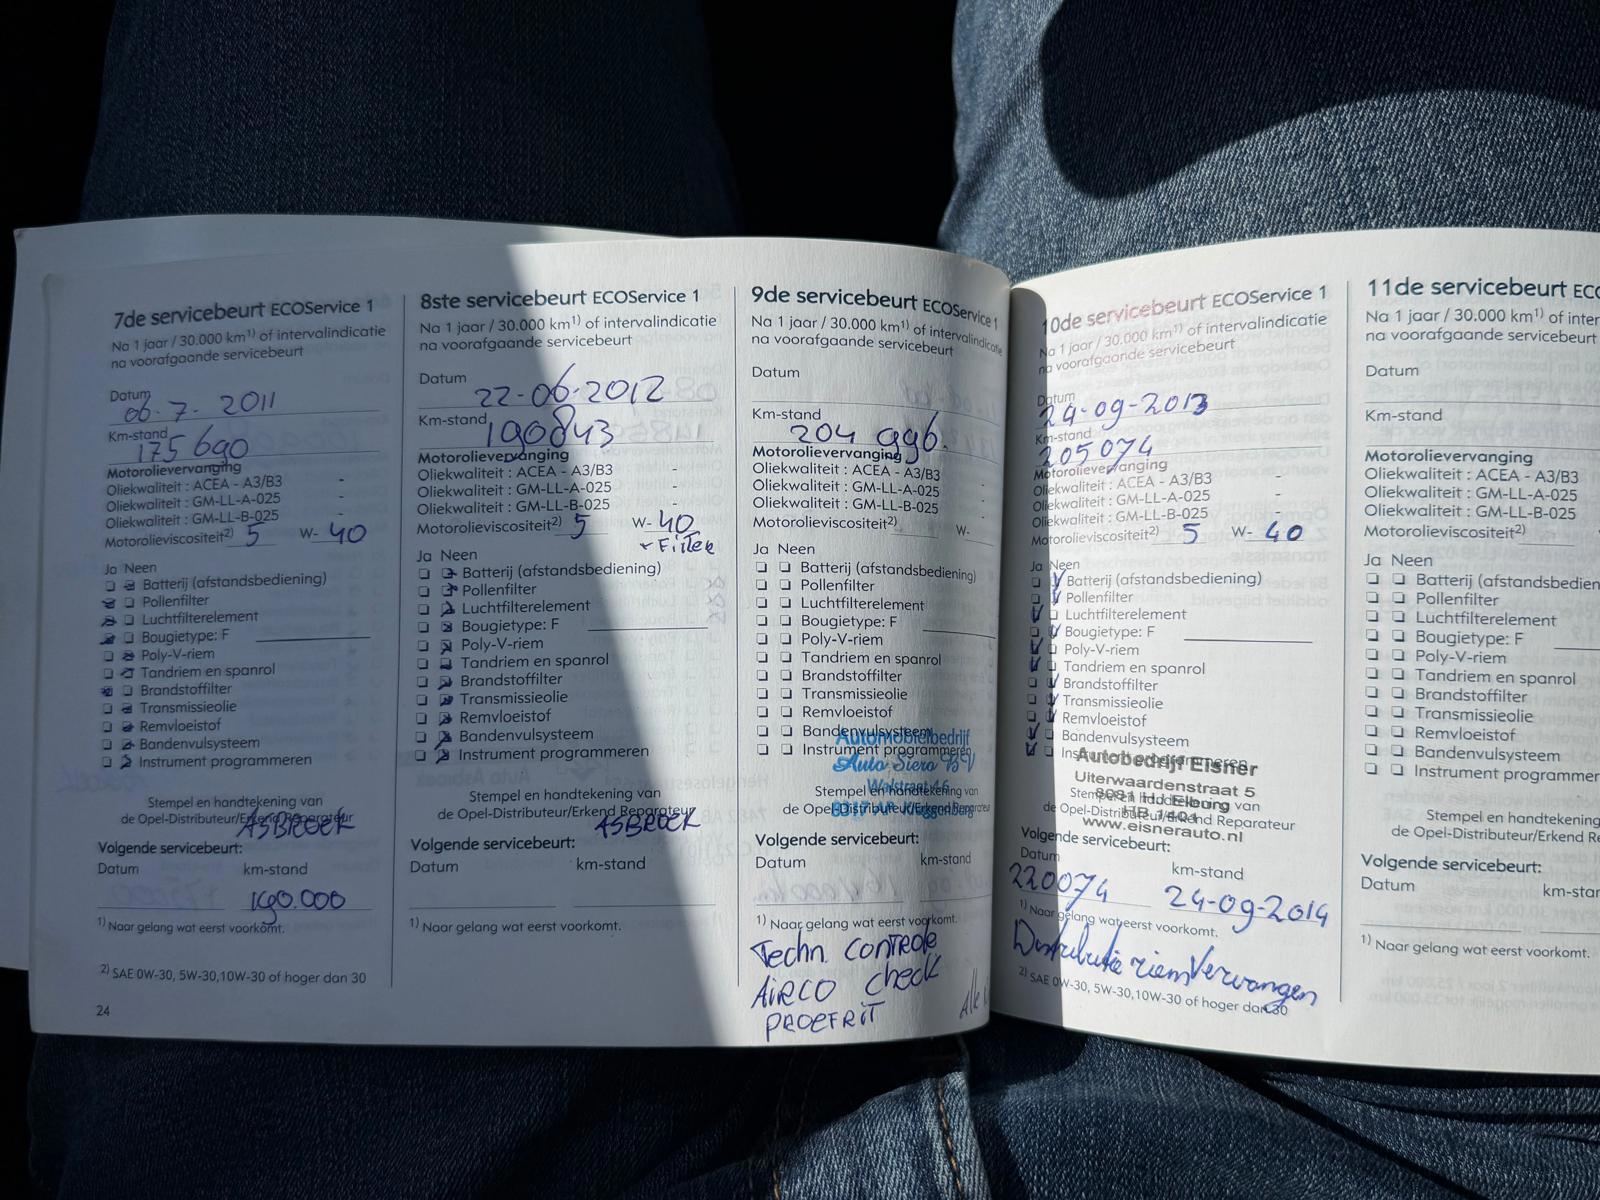 7de servicebeurt ECOService 1
Na 1 jaar / 30.000 km¹⁾ of intervalindicatie
na voorafgaande servicebeurt
Datum
06-7-2011
Km-stand
175690
Motorolievervanging
Oliekwaliteit : ACEA - A3/B3 -
Oliekwaliteit : GM-LL-A-025 -
Oliekwaliteit : GM-LL-B-025 -
Motorolieviscositeit²⁾ 5 W- 40
Ja Neen
Batterij (afstandsbediening)
Pollenfilter
Luchtfilterelement
Bougietype: F
Poly-V-riem
Tandriem en spanrol
Brandstoffilter
Transmissieolie
Remvloeistof
Bandenvulsysteem
Instrument programmeren
Stempel en handtekening van
de Opel-Distributeur/Erkend Reparateur
ASBROEK
Volgende servicebeurt:
Datum km-stand
190.000
¹⁾ Naar gelang wat eerst voorkomt.
²⁾ SAE 0W-30, 5W-30,10W-30 of hoger dan 30
24
8ste servicebeurt ECOService 1
Na 1 jaar / 30.000 km¹⁾ of intervalindicatie
na voorafgaande servicebeurt
Datum
22-06-2012
Km-stand
190843
Motorolievervanging
Oliekwaliteit : ACEA - A3/B3 -
Oliekwaliteit : GM-LL-A-025 -
Oliekwaliteit : GM-LL-B-025 -
Motorolieviscositeit²⁾ 5 W- 40
+ Filter
Ja Neen
Batterij (afstandsbediening)
Pollenfilter
Luchtfilterelement
Bougietype: F
Poly-V-riem
Tandriem en spanrol
Brandstoffilter
Transmissieolie
Remvloeistof
Bandenvulsysteem
Instrument programmeren
Stempel en handtekening van
de Opel-Distributeur/Erkend Reparateur
ASBROEK
Volgende servicebeurt:
Datum km-stand
¹⁾ Naar gelang wat eerst voorkomt.
9de servicebeurt ECOService 1
Na 1 jaar / 30.000 km¹⁾ of intervalindicatie
na voorafgaande servicebeurt
Datum
Km-stand
204 996.
Motorolievervanging
Oliekwaliteit : ACEA - A3/B3 -
Oliekwaliteit : GM-LL-A-025 -
Oliekwaliteit : GM-LL-B-025 -
Motorolieviscositeit²⁾ W-
Ja Neen
Batterij (afstandsbediening)
Pollenfilter
Luchtfilterelement
Bougietype: F
Poly-V-riem
Tandriem en spanrol
Brandstoffilter
Transmissieolie
Remvloeistof
Bandenvulsysteem
Automobielbedrijf
Instrument programmeren
Auto Siero BV
Walstraat
Stempel en handtekening van
de Opel-Distributeur/Erkend Reparateur
Volgende servicebeurt:
Datum km-stand
¹⁾ Naar gelang wat eerst voorkomt.
Techn. CONTROLE
AIRCO check
PROEFRIT
10de servicebeurt ECOService 1
Na 1 jaar / 30.000 km¹⁾ of intervalindicatie
na voorafgaande servicebeurt
Datum
24-09-2013
Km-stand
205074
Motorolievervanging
Oliekwaliteit : ACEA - A3/B3 -
Oliekwaliteit : GM-LL-A-025 -
Oliekwaliteit : GM-LL-B-025 -
Motorolieviscositeit²⁾ 5 W- 40
Ja Neen
Batterij (afstandsbediening)
Pollenfilter
Luchtfilterelement
Bougietype: F
Poly-V-riem
Tandriem en spanrol
Brandstoffilter
Transmissieolie
Remvloeistof
Bandenvulsysteem
Instrument programmeren
Autobedrijf Eisner
Uiterwaardenstraat 5
8081 HJ Elburg
Stempel en handtekening van
de Opel-Distributeur/Erkend Reparateur
www.eisnerauto.nl
Volgende servicebeurt:
Datum km-stand
220074 24-09-2014
¹⁾ Naar gelang wat eerst voorkomt.
Distributie riem Vervangen
²⁾ SAE 0W-30, 5W-30,10W-30 of hoger dan 30
11de servicebeurt
Na 1 jaar / 30.000 km¹⁾ of
na voorafgaande servicebeurt
Datum
Km-stand
Motorolievervanging
Oliekwaliteit : ACEA - A3/B3
Oliekwaliteit : GM-LL-A-025
Oliekwaliteit : GM-LL-B-025
Motorolieviscositeit²⁾
Ja Neen
Batterij
Pollenfilter
Luchtfilterelement
Bougietype: F
Poly-V-riem
Tandriem en spanrol
Brandstoffilter
Transmissieolie
Remvloeistof
Bandenvulsysteem
Instrument
Stempel en handtekening
de Opel-Distributeur/Erkend
Volgende servicebeurt:
Datum
¹⁾ Naar gelang wat eerst voorkomt.